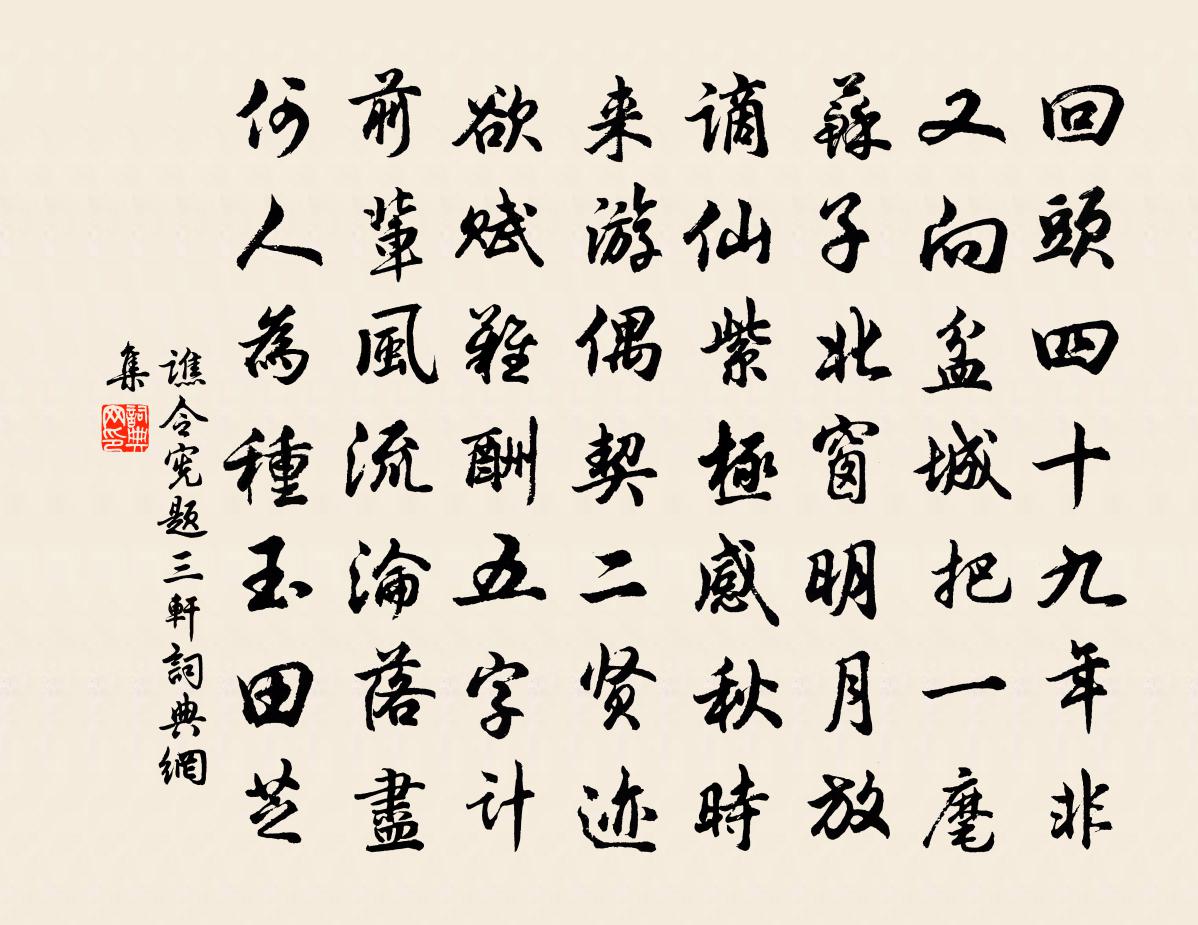 回頭四十九年非
又向盆城把一麾
蘇子北窗明月放
謫仙紫極感秋時
来游偶契二贤迹
欲赋難酬五字计
前輩風流淪落盡
何人為種玉田芝
譙令宪题三軒詞典網
集
詞典
网印